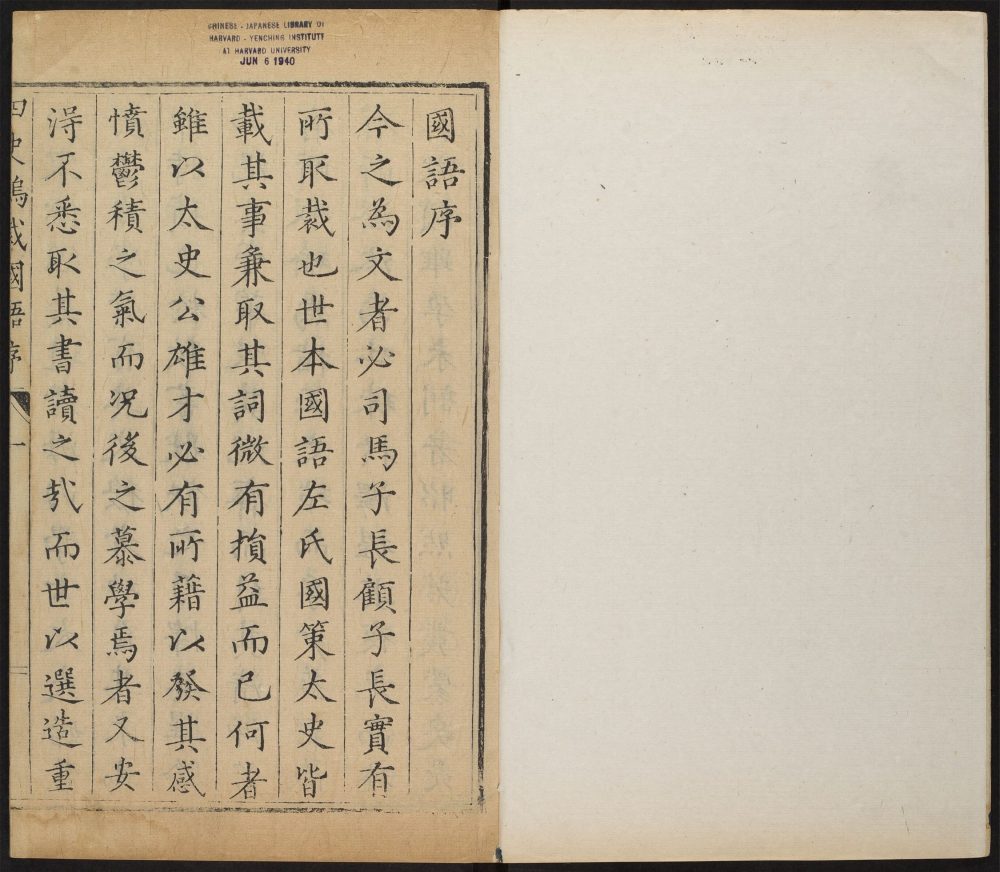 CHINESE - JAPANESE LIBRARY OF
HARVARD - YENCHING INSTITUTE
AT HARVARD UNIVERSITY
JUN 6 1940
國語序
今之為文者必司馬子長顧子長實有
所取裁也世本國語左氏國策太史皆
載其事兼取其詞微有損益而已何者
雖以太史公雄才必有所藉以發其感
憤鬱積之氣而況後之慕學焉者又安
得不悉取其書讀之哉而世以選造重
四史鴻裁國語序
一